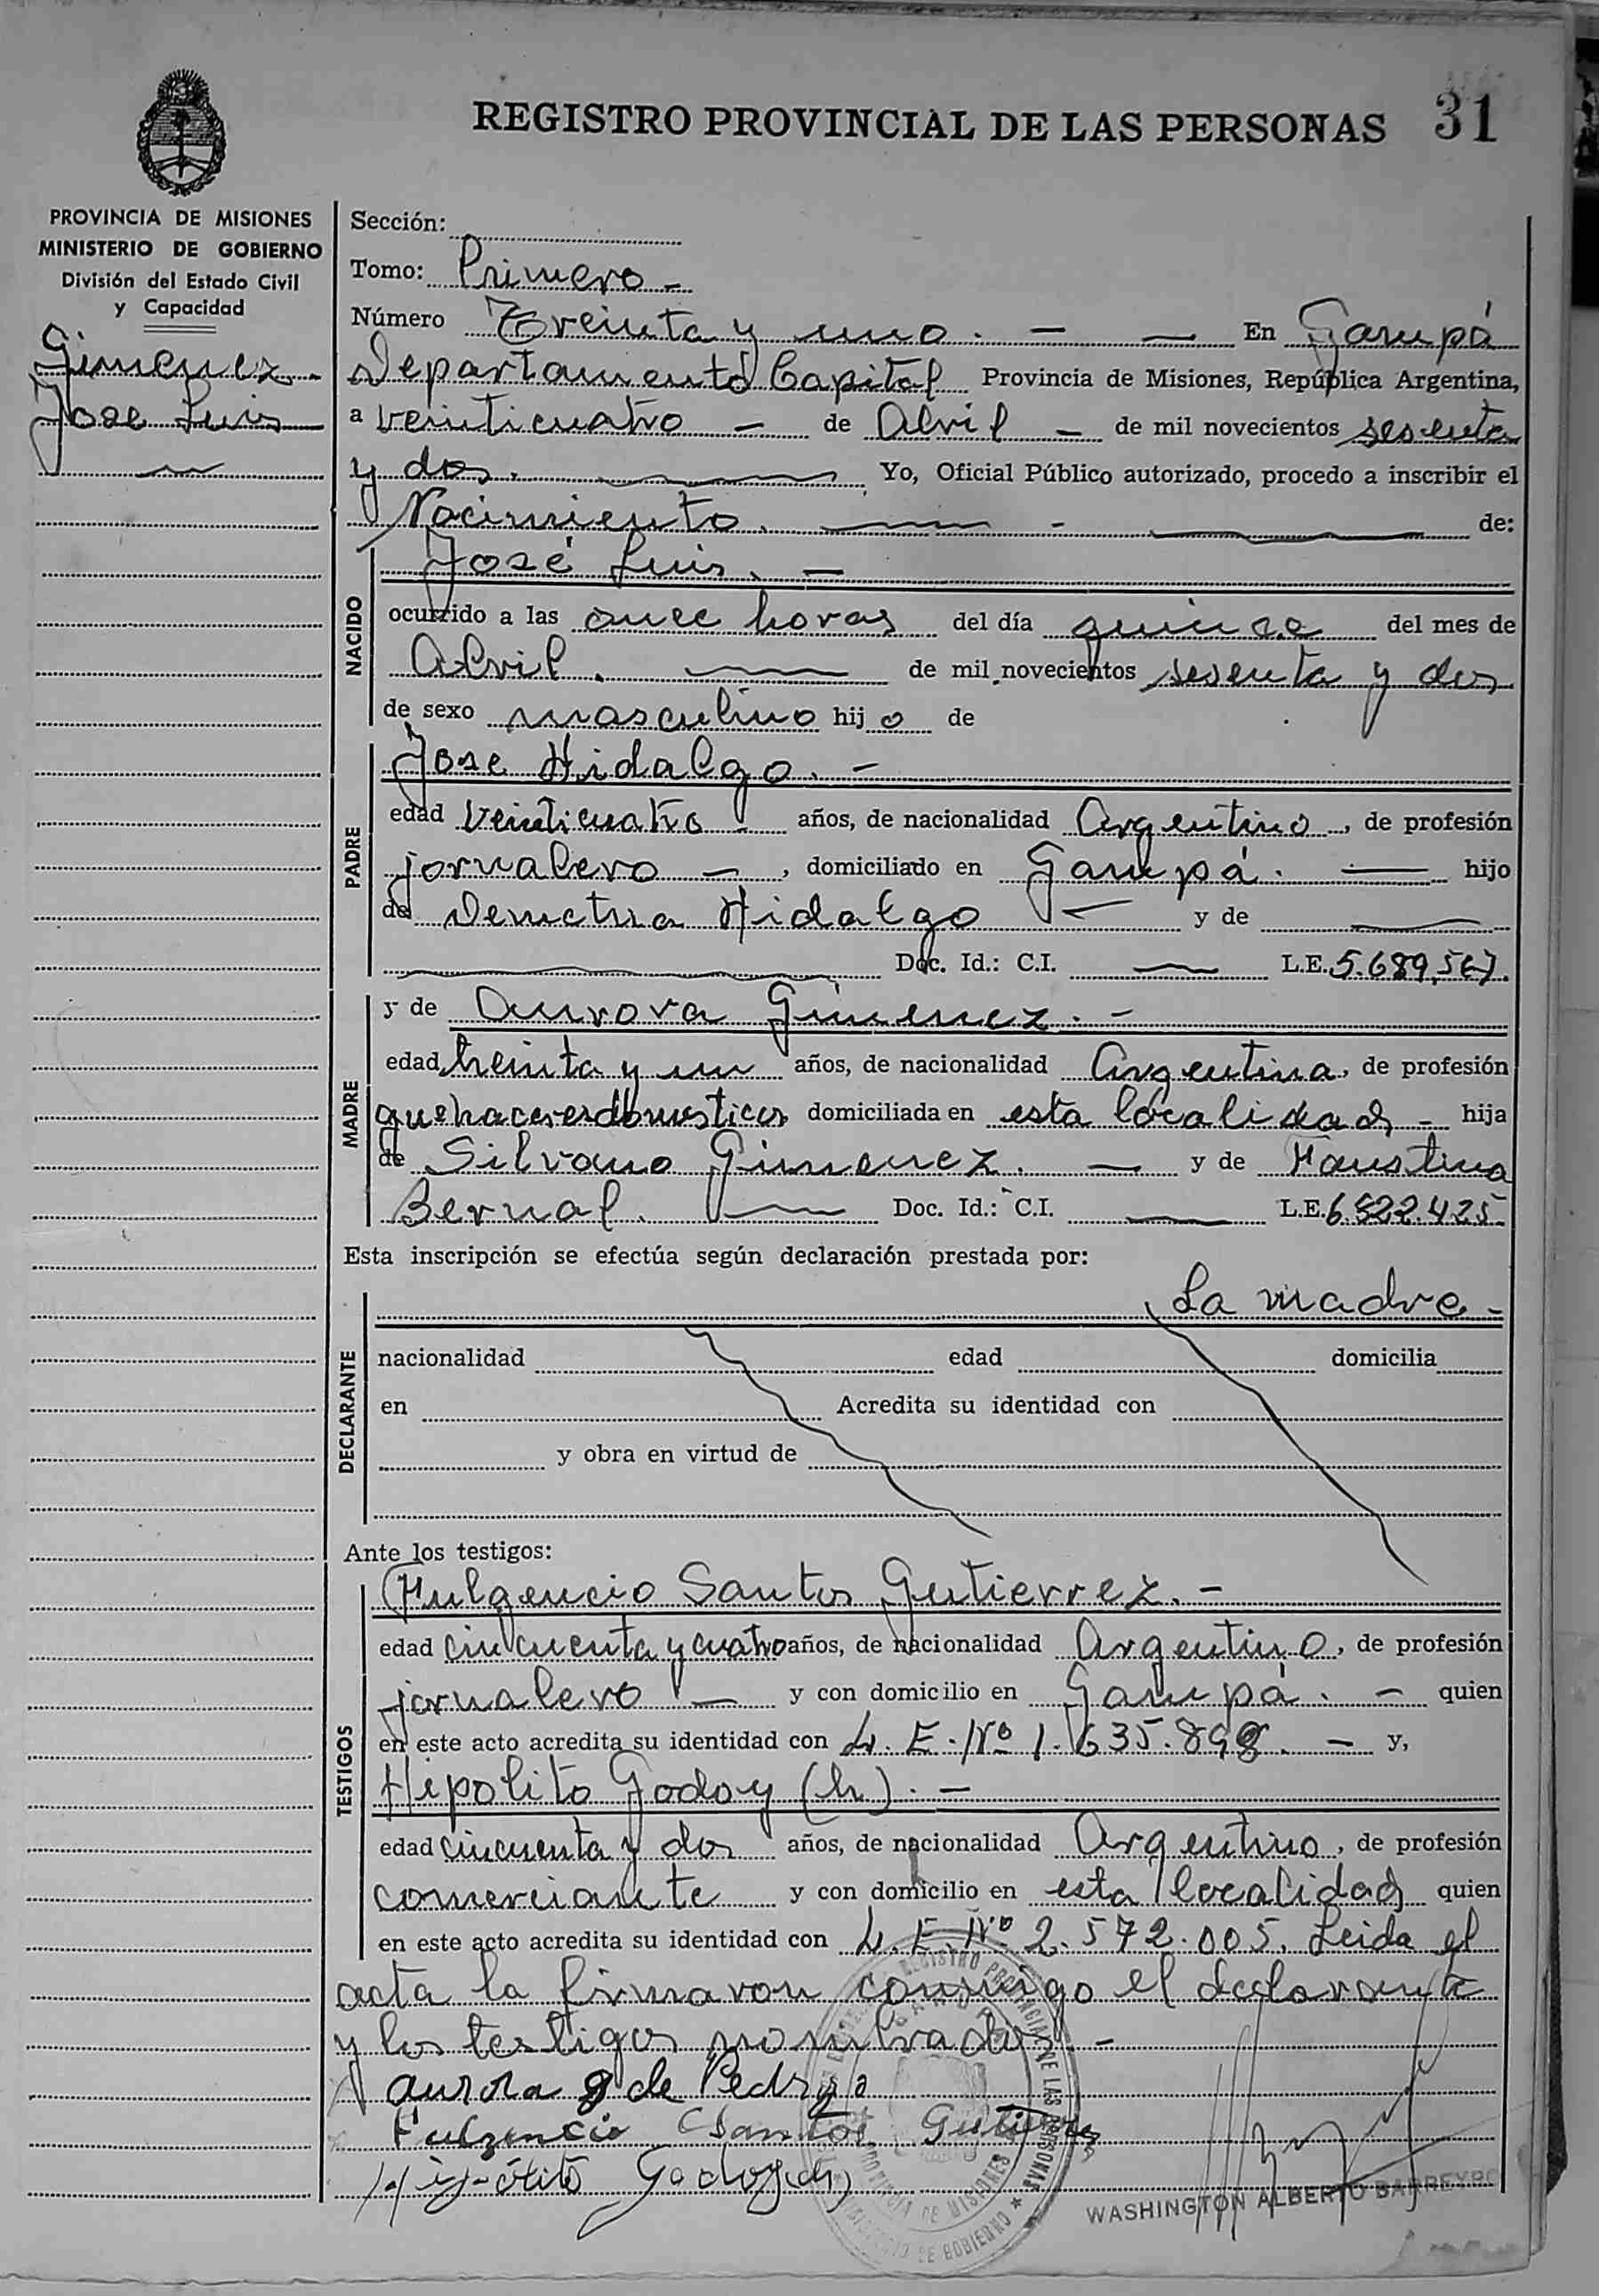 REGISTRO PROVINCIAL DE LAS PERSONAS 31
PROVINCIA DE MISIONES
MINISTERIO DE GOBIERNO
División del Estado Civil
y Capacidad
Gimenez
Jose Luis
Sección:
Tomo: Primero -
Número Treinta y uno. - - En Garupá
Departamento Capital Provincia de Misiones, República Argentina,
a veinticuatro - de Abril - de mil novecientos sesenta
y dos. Yo, Oficial Público autorizado, procedo a inscribir el
Nacimiento. - de:
NACIDO
José Luis. -
ocurrido a las once horas del día quinze del mes de
Abril. de mil novecientos sesenta y dos
de sexo masculino hijo de
PADRE
Jose Hidalgo. -
edad veinticuatro - años, de nacionalidad Argentino, de profesión
jornalero -, domiciliado en Garupá. - hijo
de Demetria Hidalgo - y de
Doc. Id.: C.I. - L.E. 5.689.567.
MADRE
y de Aurora Gimenez. -
edad treinta y un años, de nacionalidad Argentina, de profesión
quehaceres domesticos domiciliada en esta localidad - hija
de Silvano Gimenez. - y de Faustina
Bernal. - Doc. Id.: C.I. - L.E. 6.322.425
Esta inscripción se efectúa según declaración prestada por:
DECLARANTE
La madre -
nacionalidad edad domicilia
en Acredita su identidad con
y obra en virtud de
Ante los testigos:
TESTIGOS
Fulgencio Santos Gutierrez. -
edad cincuenta y cuatro años, de nacionalidad Argentino, de profesión
jornalero - y con domicilio en Garupá. - quien
en este acto acredita su identidad con L. E. Nº 1.635.898. - y,
Hipolito Godoy (h). -
edad cincuenta y dos años, de nacionalidad Argentino, de profesión
comerciante y con domicilio en esta localidad quien
en este acto acredita su identidad con L. E. Nº 2.572.005. Leida el
acta la firmaron conmigo el declarante
y los testigos nombrados. -
aurora g de Pedrozo
Fulgencio Santos Gutierrez
Hipólito Godoy (h)
WASHINGTON ALBERTO BARREYRO